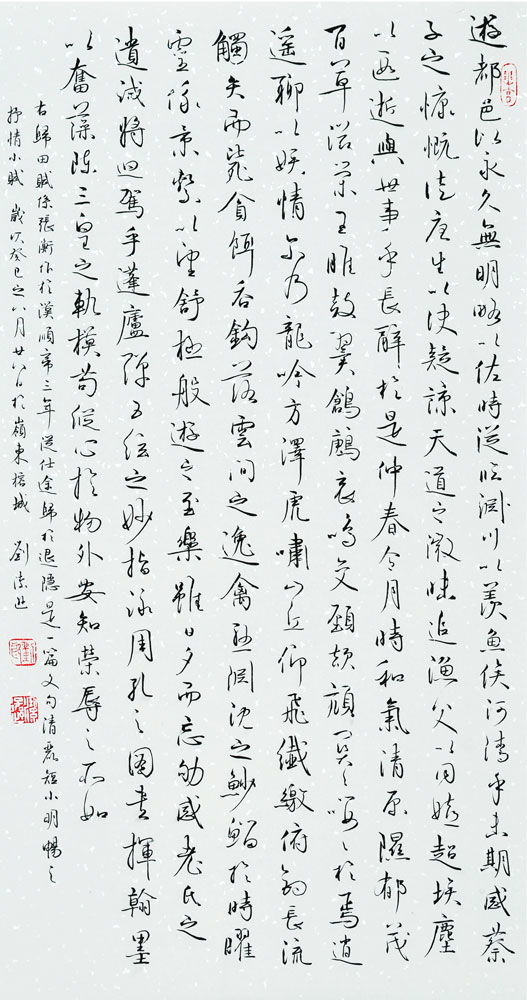 遊都邑以永久無明略以佐時從臨淵川以羨魚俟河清乎未期感蔡
子之慷慨從唐生以決疑諒天道之微昧追漁父以同嬉超埃塵
以遐逝與世事乎長辭於是仲春令月時和氣清原隰郁茂
百草滋榮王雎鼓翼鶬鶊哀鳴交頸頡頏關〻嚶〻於焉逍
遙聊以娛情爾乃龍吟方澤虎嘯山丘仰飛纖繳俯釣長流
觸矢而斃貪餌吞鉤落雲間之逸禽懸淵沈之魦鰡於時曜
靈俄景繫以望舒極般遊之至樂雖日夕而忘劬感老氏之
遺誡將迴駕乎蓬廬彈五絃之妙指詠周孔之圖書揮翰墨
以奮藻陳三皇之軌模苟縱心於物外安知榮辱之所如
右歸田賦係張衡作於漢順帝三年從仕途歸於退隱是一篇文句清麗短小明暢之
抒情小賦 歲次癸巳之八月廿八日於嶺東榕城 劉